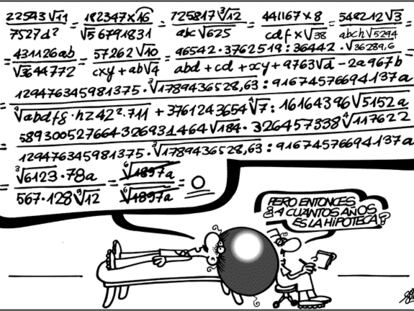 22593√11 / 7527d² = 182347×16 / √5679831 = 725817³√12 / abc√625 = 441167×8 / cdf×√38 = 548212√3 / abch√5294
= 431126ab / ³√3644772 = 57262√10 / cxy+ab√4 = 96542·3762519:36442·√36289,6 / abd+cd+xy+9763√d-2a967b
12447634598137­5·³√1789436528,63:91674576694137a
√abdfg·hz42²·711+3761243654√7:16164396√5152a
589300527664326931.4464√184·326457338√117622
124476345981375·³√1789436528,63:91674576694137a
= ³√6123·78a / 567·128³√12 = √1897a / √1897a = 0
PERO ENTONCES
¿A CUÁNTOS AÑOS
ES LA HIPOTECA?